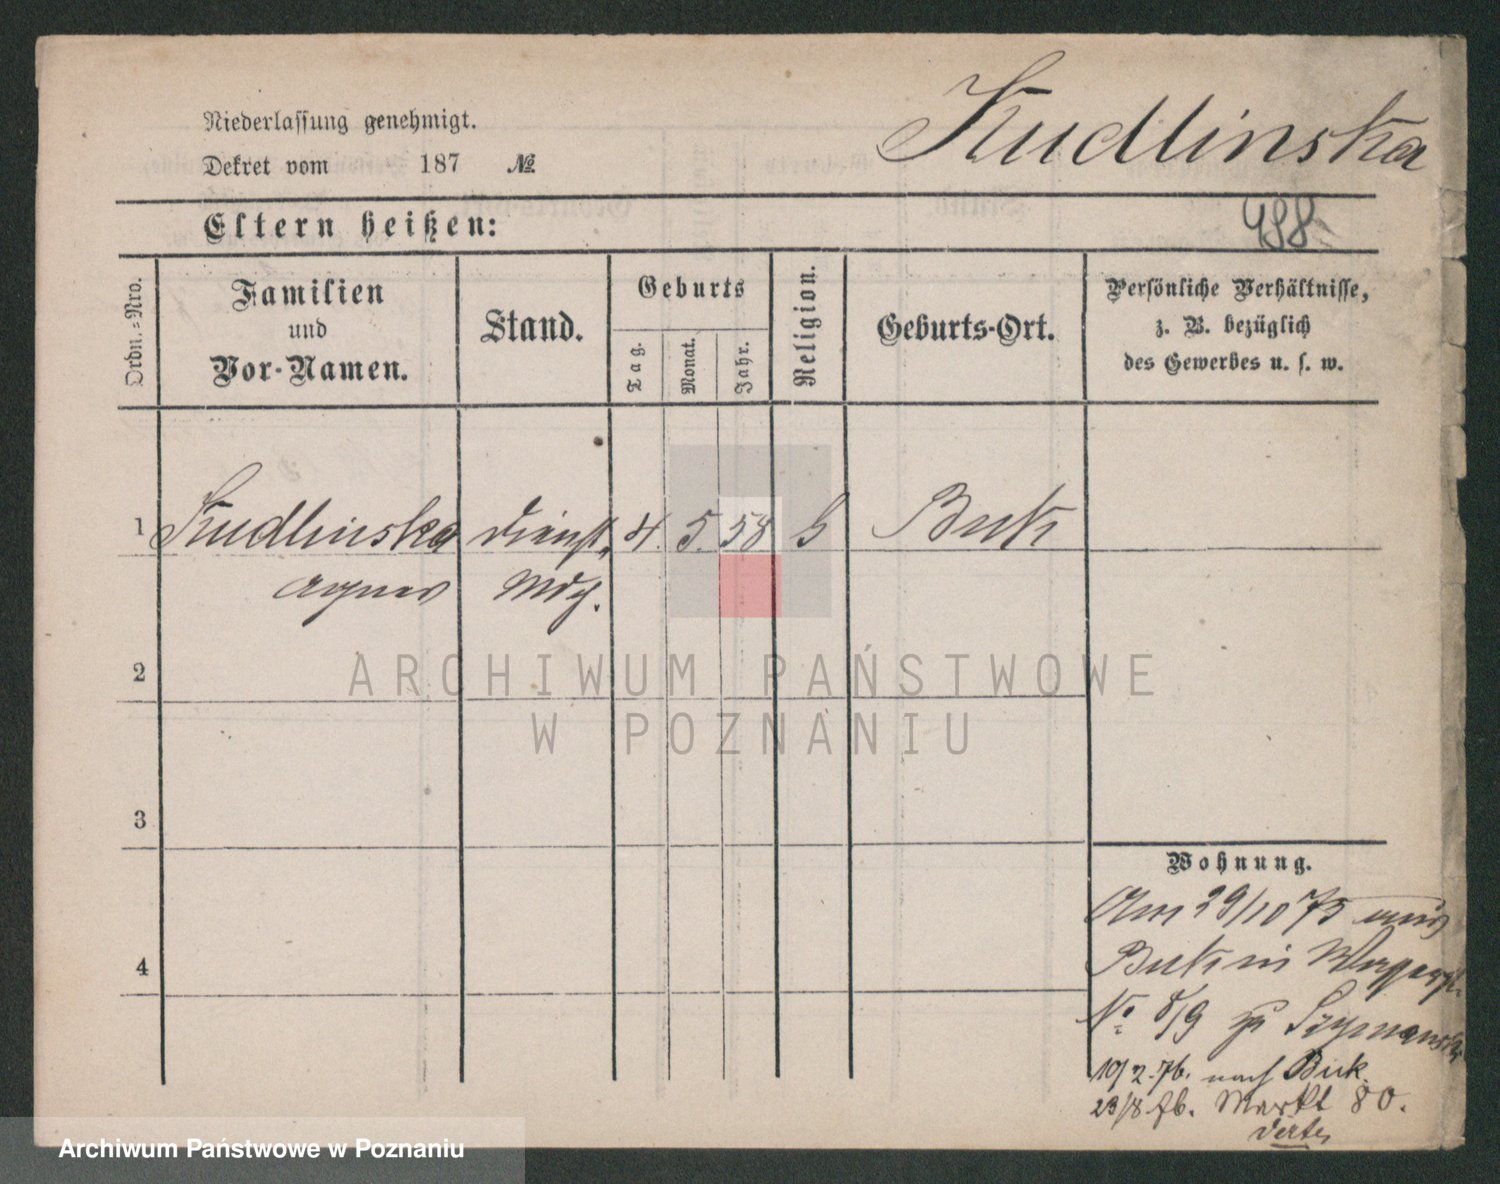 Kudlinska
Niederlassung genehmigt.
Dekret vom 187 №
Eltern heißen:
498
Ordn.=Nro.
Familien
und
Vor-Namen.
Stand.
Geburts
Tag.
Monat.
Jahr.
Religion.
Geburts-Ort.
Persönliche Verhältnisse,
z. B. bezüglich
des Gewerbes u. s. w.
1 Kudlinska Dienst 4. 5. 58 Buk
Agnes Mdch.
2
ARCHIWUM PAŃSTWOWE
W POZNANIU
3
Wohnung.
Am 29/10 75 aus
4
Buk in
No 8/9 zu Szymanski
10/2.76. nach Buk.
23/8 76. Markt 80.
verte
Archiwum Państwowe w Poznaniu